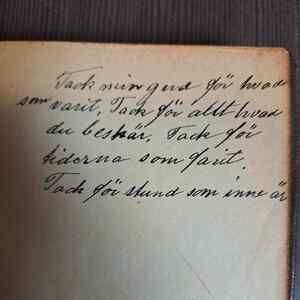 Tack min gud för hvad
som varit, Tack för allt hvad
du beskär, Tack för
tiderna som farit,
Tack för stund som inne är